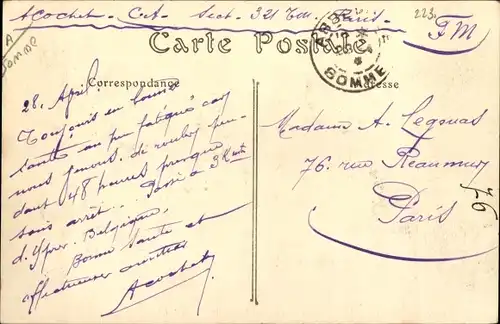 Acochet - Cet - Sect - 321 Tm - Paris -
223
FM
A
Somme
Carte Postale
SOMME
Correspondance
28 April
Toujours en bonne
santé un peu fatigué car
nous venons de rouler pen
dant 48 heures presque
sans arrêt. Passé à 3 Kmts
d'Ypres. Belgique.
Bonne Santé et
affectueuses amitiés
Acochet
Madame A. Legouas
76. rue Réaumur
Paris
76